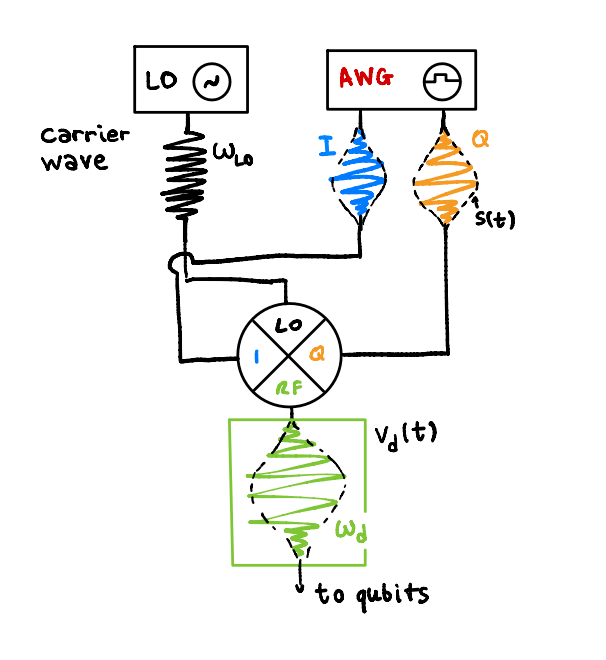 LO
AWG
carrier
wave
ω_LO
I
Q
s(t)
LO
I
Q
RF
V_d(t)
ω_d
to qubits